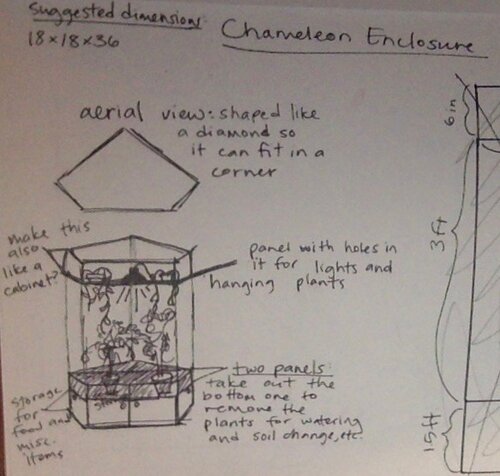 Suggested dimensions:
18x18x36
Chameleon Enclosure
aerial view: shaped like
a diamond so
it can fit in a
corner
make this
also
like a
cabinet?
panel with holes in
it for lights and
hanging plants
two panels:
take out the
bottom one to
remove the
plants for watering
and soil change, etc.
storage
for
food and
misc.
items
storage
6in
3ft
1.5ft